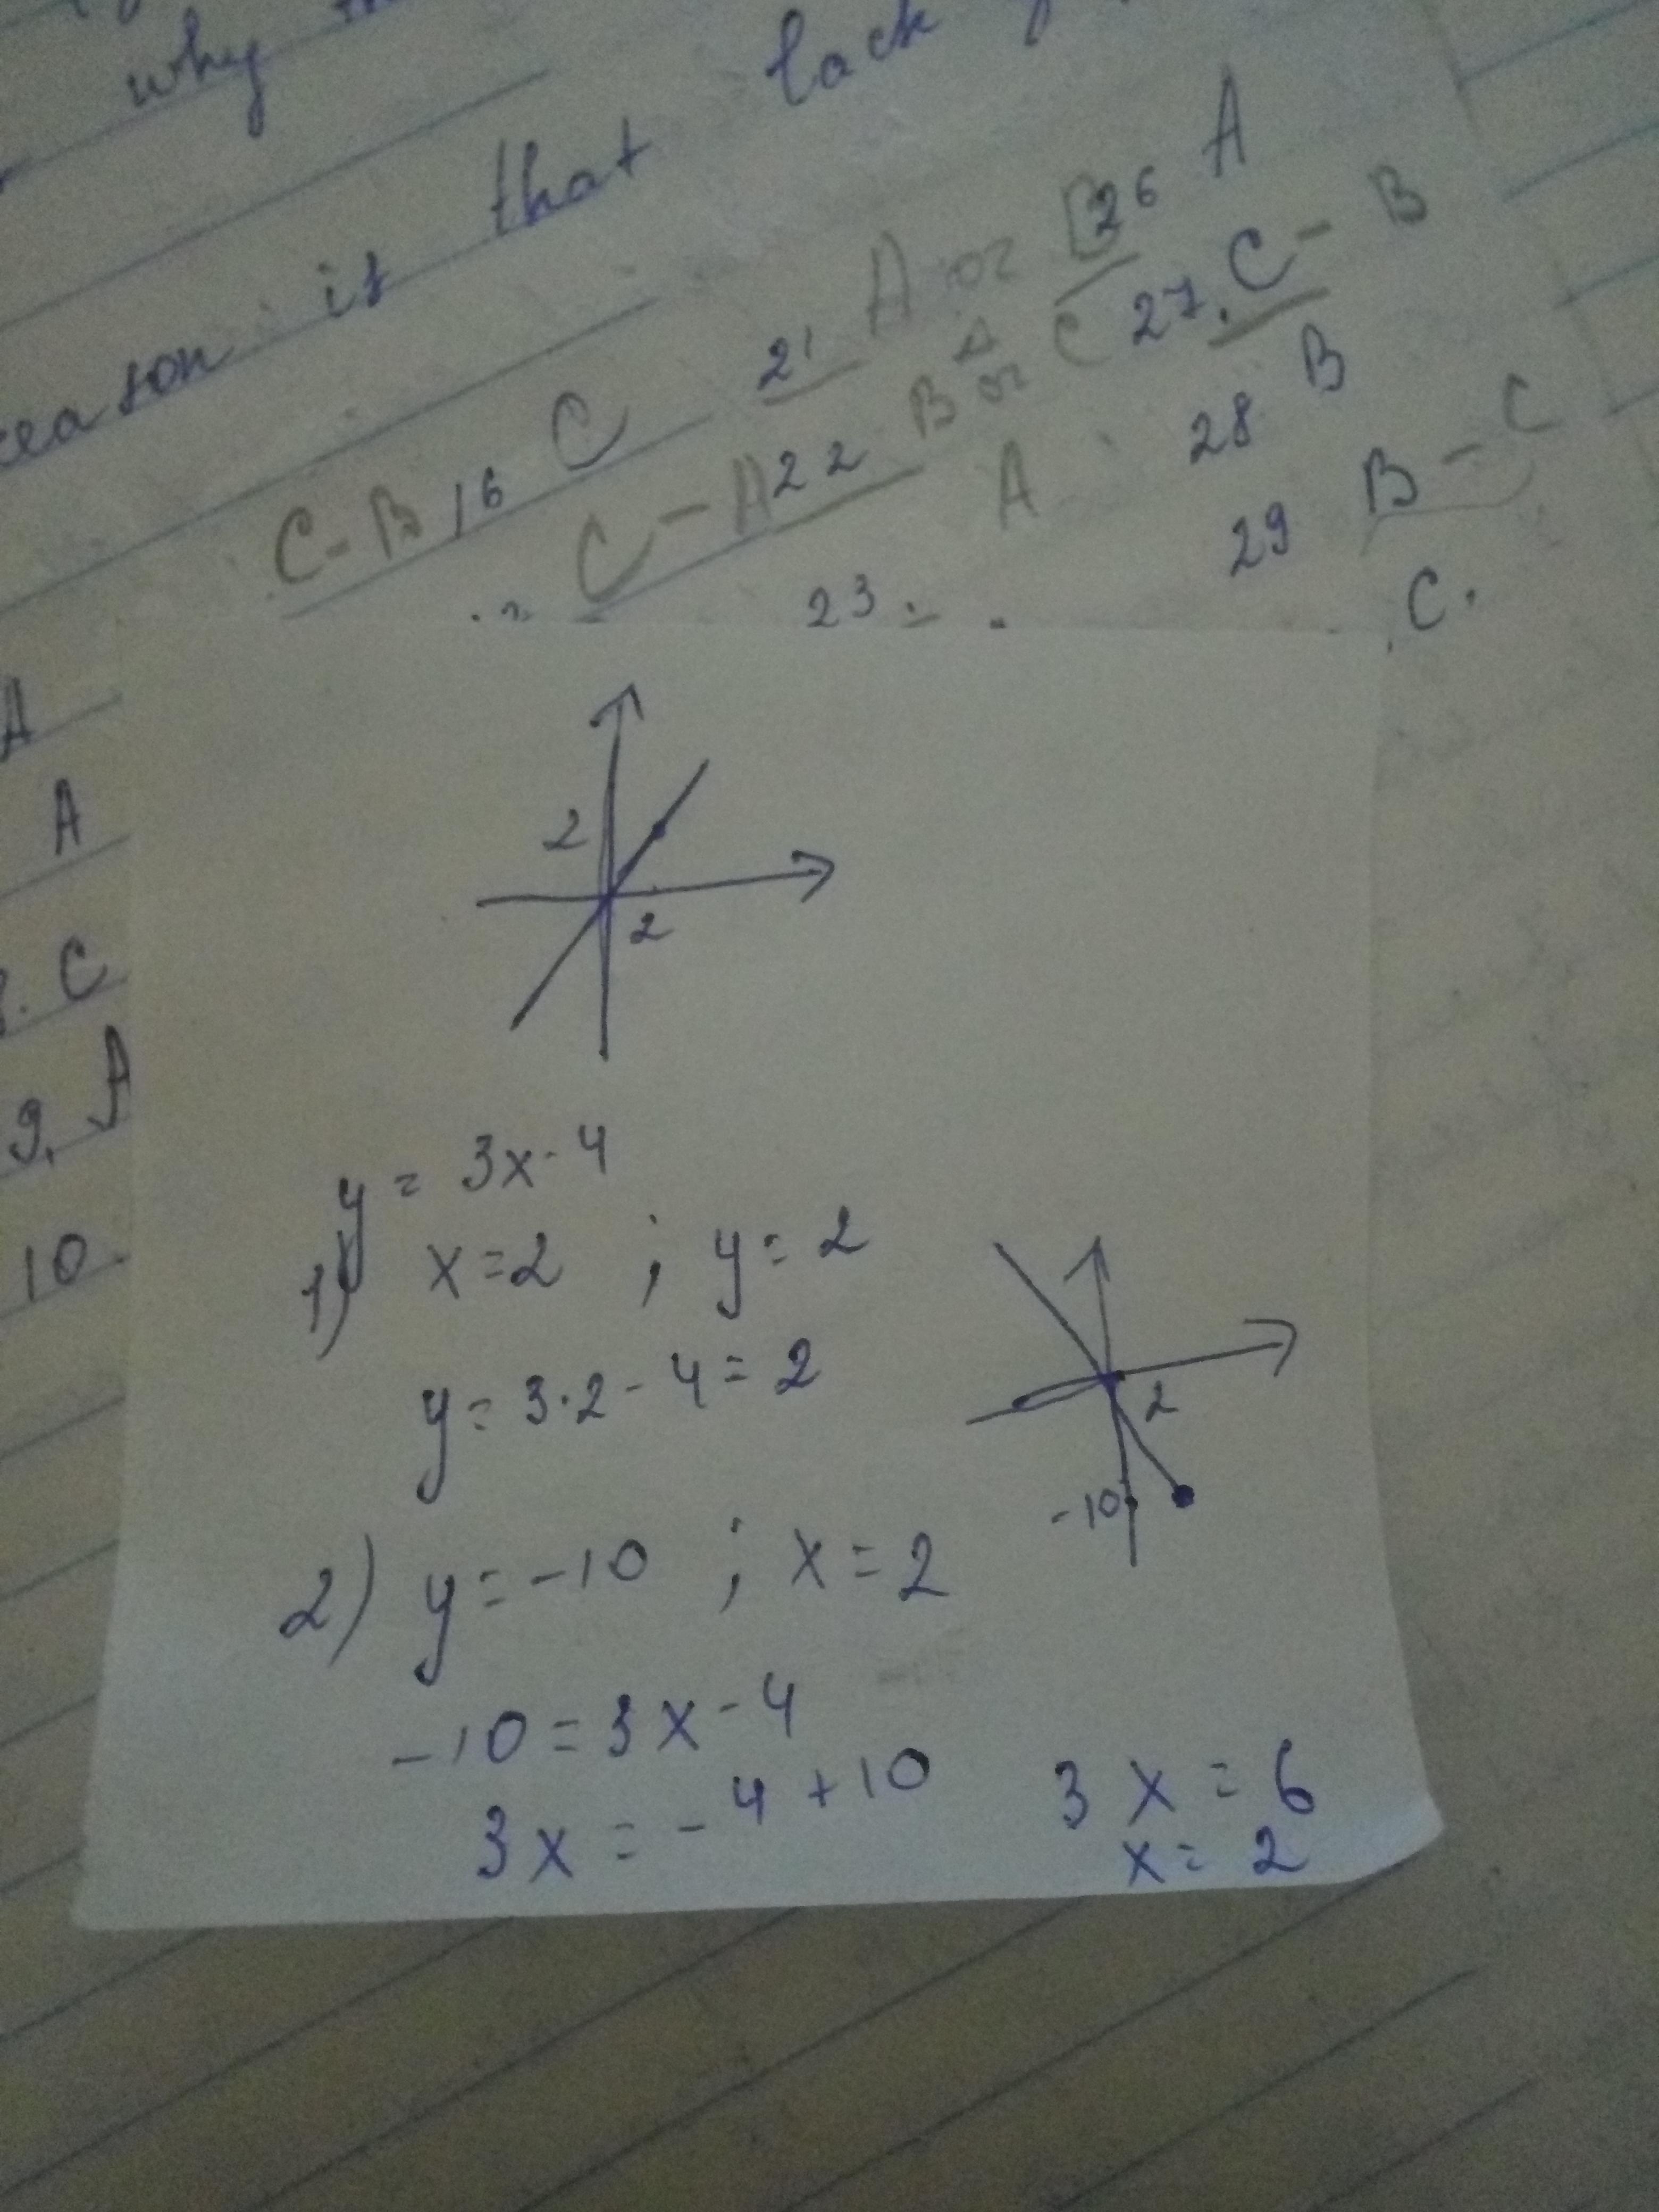 why
lack
reason is that
A
26
A or B
21
27. C - B
B or C
C
16
C - B
28 B
22
C - A
A
29 B - C
23
C.
A
A
C
9. A
10.
2
2
y = 3x - 4
1) x = 2 ; y = 2
y = 3·2 - 4 = 2
2
-10
2) y = -10 ; x = 2
-10 = 3x - 4
3x = -4 + 10
3x = 6
x = 2